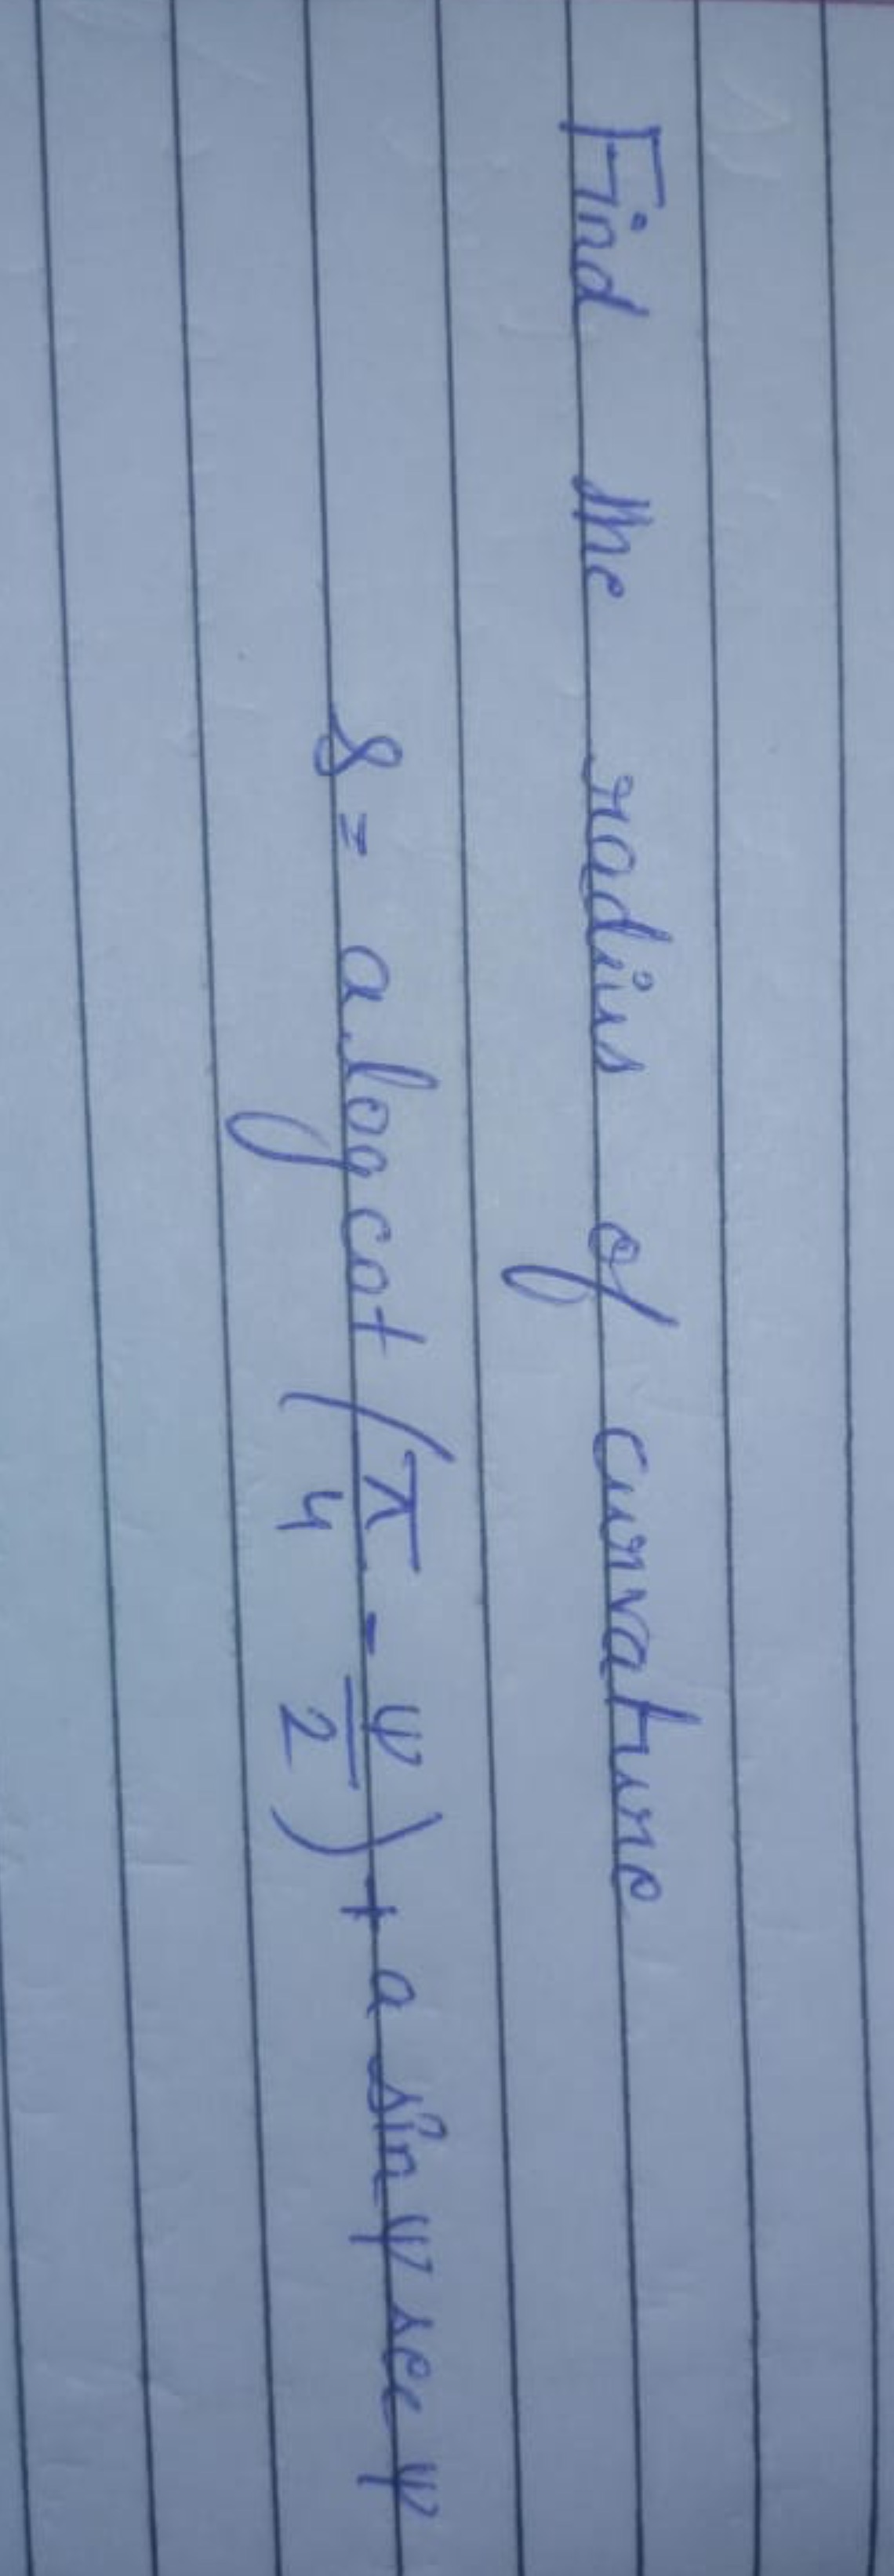 Find the radius of curvature
s = a log cot (π/4 - ψ/2) + a sin ψ sec ψ